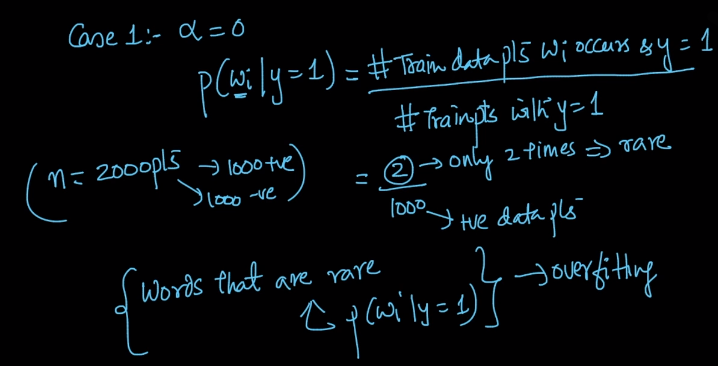 Case 1:- α = 0
p(wi | y=1) = # Train data pts wi occurs & y = 1
# Train pts with y = 1
( n = 2000 pts → 1000 +ve
→ 1000 -ve ) = 2 → only 2 times ⇒ rare
1000 → +ve data pts
{ Words that are rare
↑ p(wi | y=1) } → overfitting